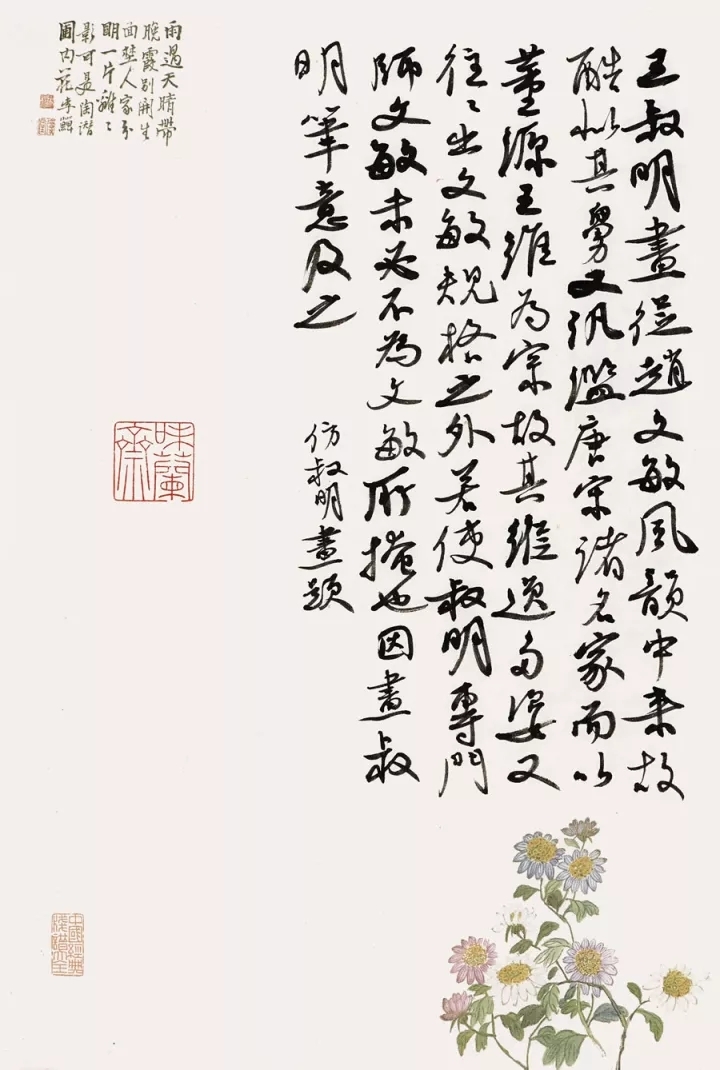 王叔明畫從趙文敏風韻中來故
酷似其舅又汎濫唐宋諸名家而以
董源王維為宗故其縱逸多姿又
往々出文敏規格之外若使叔明專門
師文敏未必不為文敏所掩也因畫叔
明筆意及之
仿叔明畫題
雨過天晴帶
晚霞別開生
面埜人家分
明一片離々
影可是陶潛
圃內花 李鱓
味蘭
齋
中國經典
箋譜大全